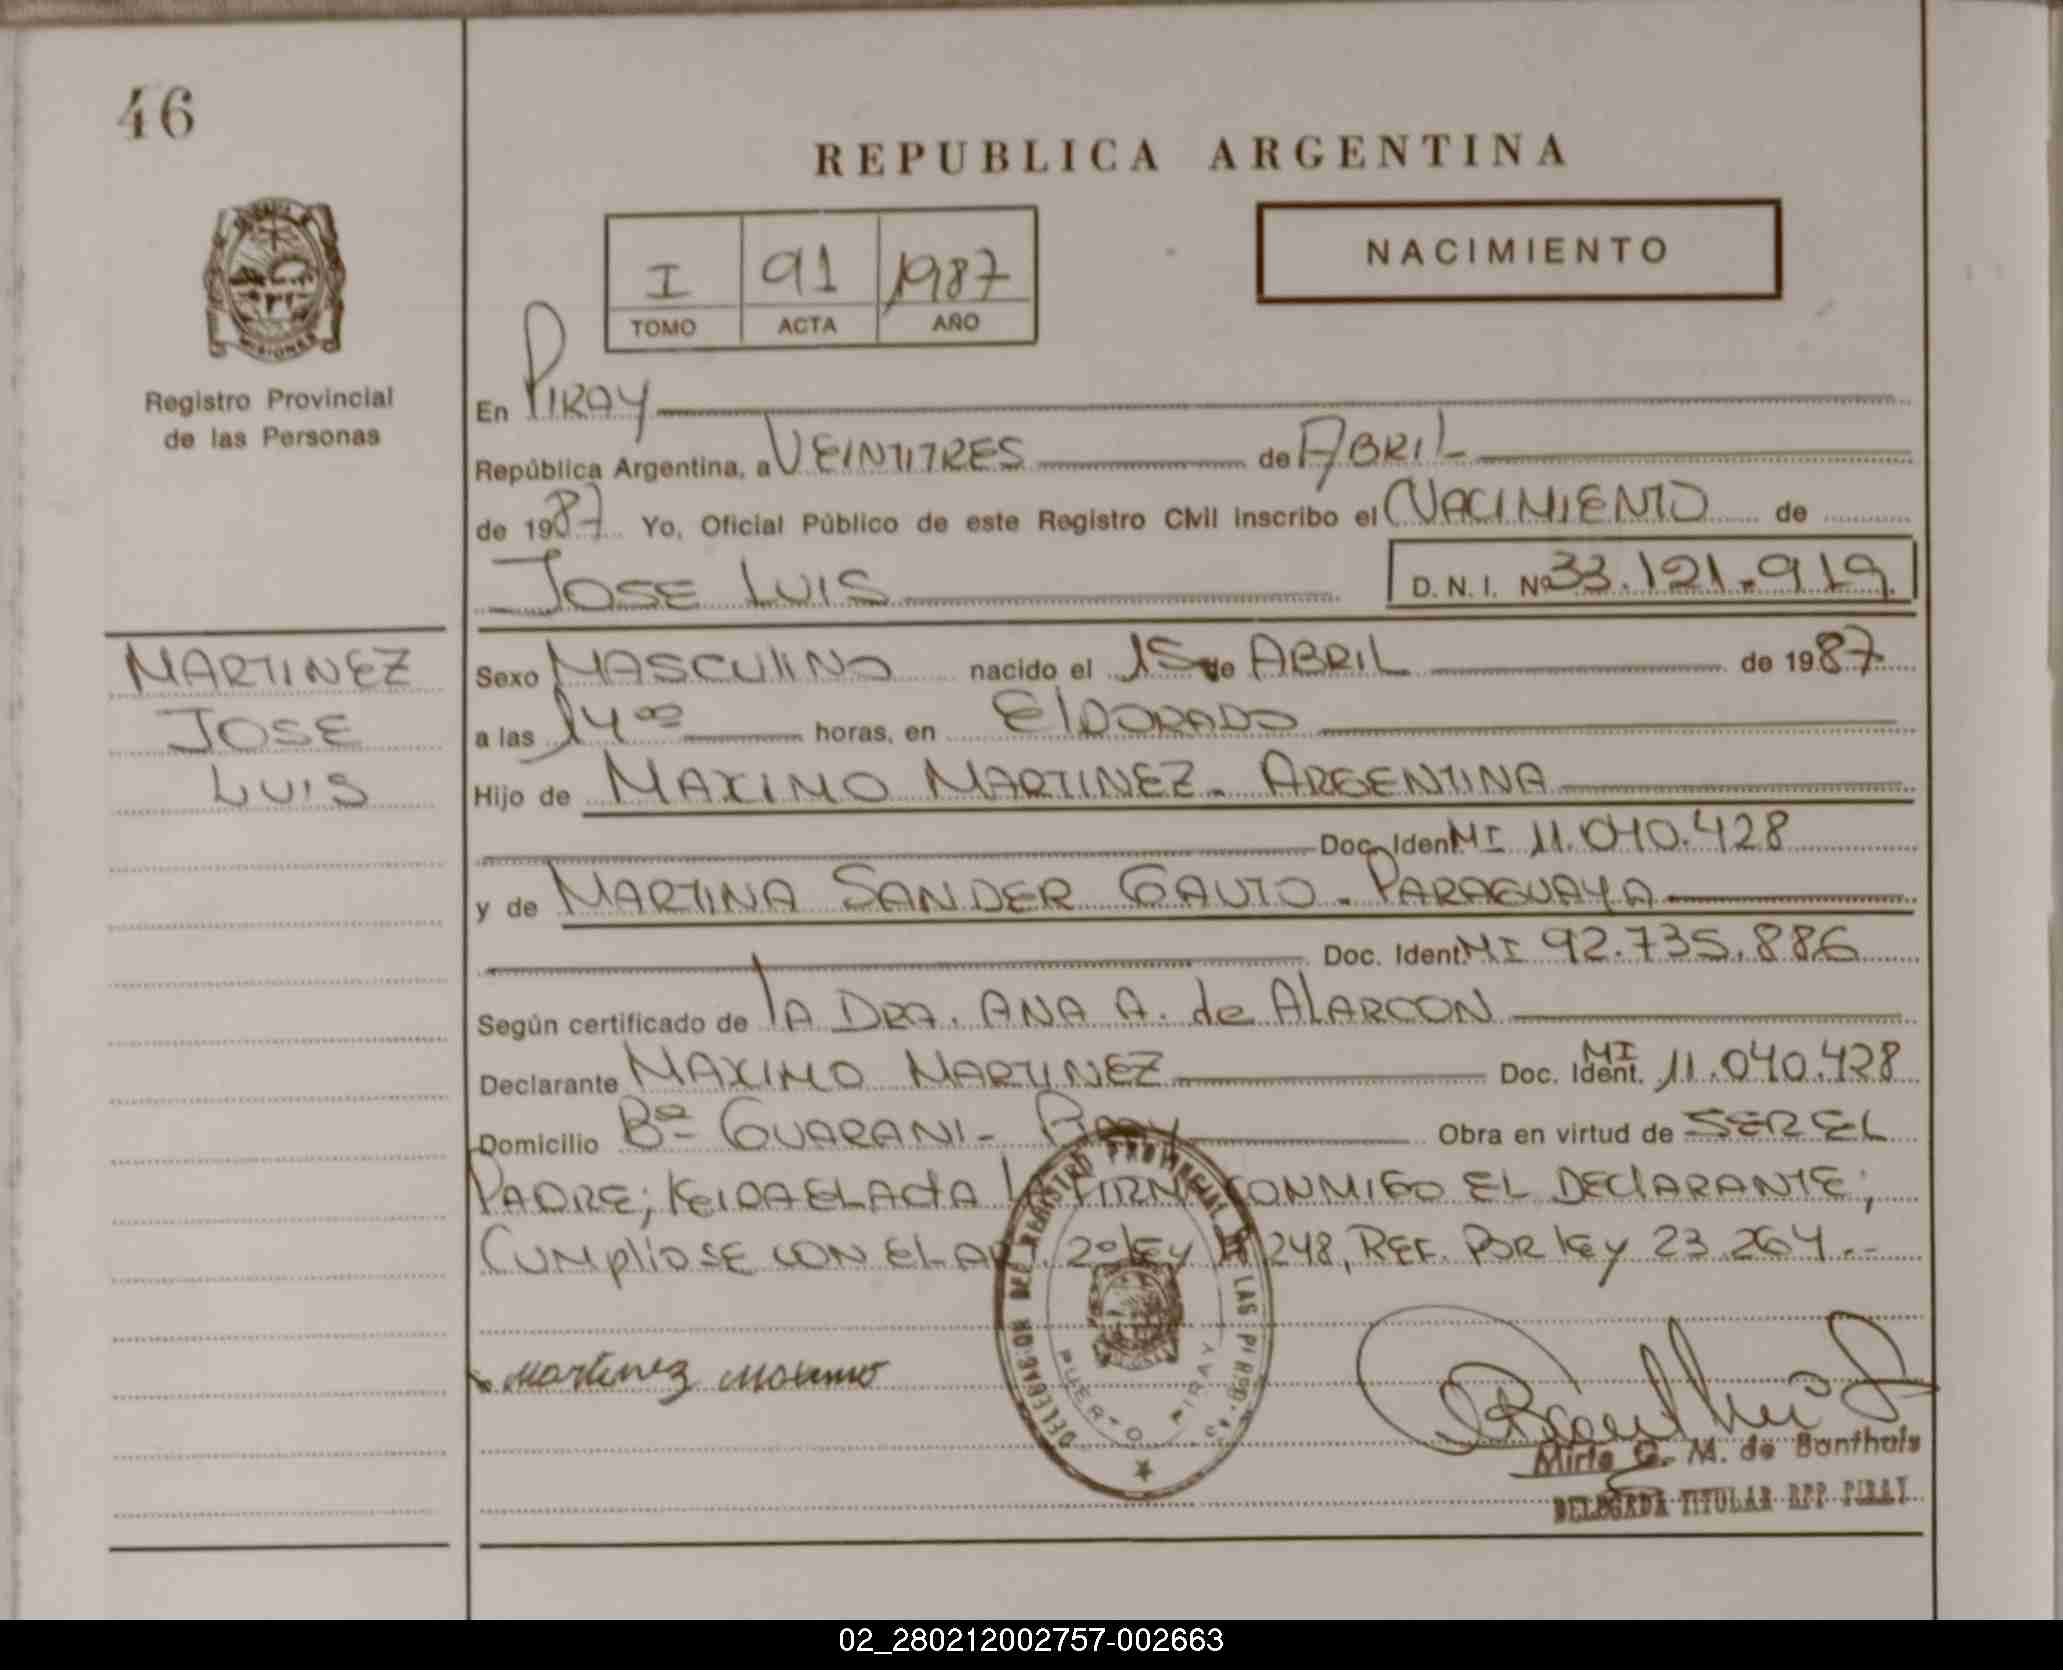 46
REPUBLICA ARGENTINA
NACIMIENTO
I 91 1987
TOMO ACTA AÑO
MISIONES
Registro Provincial
de las Personas
En PIRAY
República Argentina, a VEINTITRES de ABRIL
de 1987 Yo, Oficial Público de este Registro Civil inscribo el NACIMIENTO de
JOSE LUIS D. N. I. Nº 33.121.919
MARTINEZ
JOSE
LUIS
Sexo MASCULINO nacido el 15 de ABRIL de 1987
a las 14 00 horas, en ElDORADO
Hijo de MAXIMO MARTINEZ - ARGENTINA
Doc. Ident. MI 11.040.428
y de MARTINA SANDER GAUTO - PARAGUAYA
Doc. Ident. MI 92.735.886
Según certificado de lA DRA. ANA A. de AlARCON
Declarante MAXIMO MARTINEZ Doc. Ident. MI 11.040.428
Domicilio Bº GUARANI - PIRAY Obra en virtud de SER EL
PADRE; leIDA El ActA lA FIRMA CONMIGO EL DEClARANTE;
CUMplIOSE CON El ART. 2º lEY 18.248, REF. POR leY 23.264.--
DELEGADO DEL REGISTRO PROVINCIAL DE LAS PERSONAS
PUERTO PIRAY
Martinez Maximo
Mirta G. M. de Banthals
DELEGADA TITULAR RPP PIRAY
02_280212002757-002663